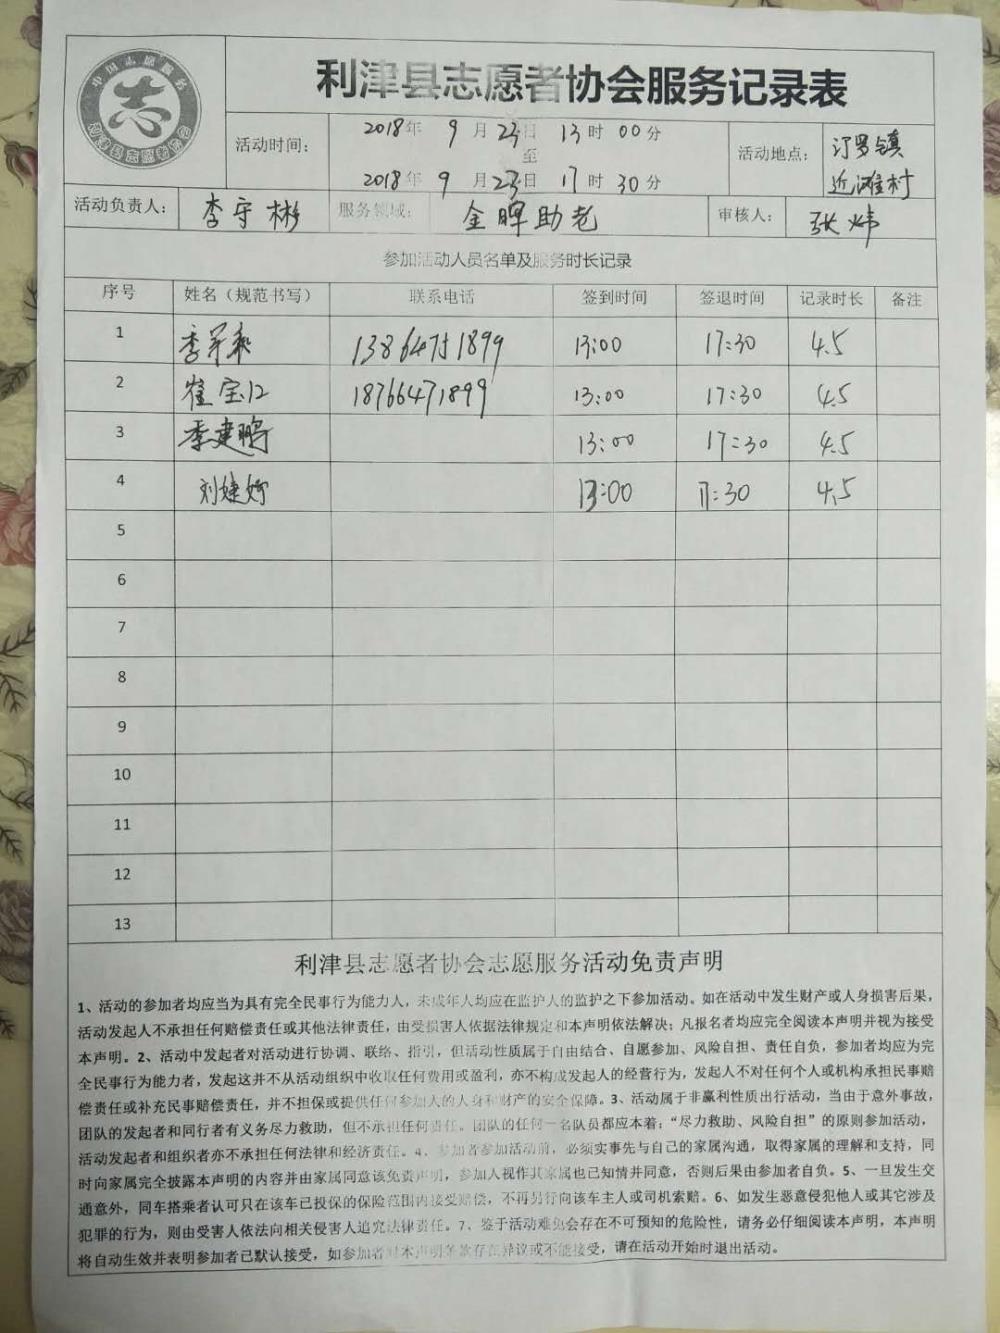 中国志愿服务
志
利津县志愿者协会
利津县志愿者协会服务记录表
活动时间：
2018年 9 月 23日 13 时 00 分
至
2018年 9 月 23日 17 时 30 分
活动地点：
汀罗镇
近滩村
活动负责人： 李守彬 服务领域： 金晖助老 审核人： 张炜
参加活动人员名单及服务时长记录
序号 姓名（规范书写） 联系电话 签到时间 签退时间 记录时长 备注
1 13:00 17:30 4.5
2 崔宝江 18766471899 13:00 17:30 4.5
3 李建鹏 13:00 17:30 4.5
4 刘婕妤 13:00 17:30 4.5
5
6
7
8
9
10
11
12
13
利津县志愿者协会志愿服务活动免责声明
1、活动的参加者均应当为具有完全民事行为能力人，未成年人均应在监护人的监护之下参加活动。如在活动中发生财产或人身损害后果，
活动发起人不承担任何赔偿责任或其他法律责任，由受损害人依据法律规定和本声明依法解决；凡报名者均应完全阅读本声明并视为接受
本声明。2、活动中发起者对活动进行协调、联络、指引，但活动性质属于自由结合、自愿参加、风险自担、责任自负，参加者均应为完
全民事行为能力者，发起这并不从活动组织中收取任何费用或盈利，亦不构成发起人的经营行为，发起人不对任何个人或机构承担民事赔
偿责任或补充民事赔偿责任，并不担保或提供任何参加人的人身和财产的安全保障。3、活动属于非赢利性质出行活动，当由于意外事故，
团队的发起者和同行者有义务尽力救助，但不承担任何责任。团队的任何一名队员都应本着：“尽力救助、风险自担”的原则参加活动，
活动发起者和组织者亦不承担任何法律和经济责任。4、参加者参加活动前，必须实事先与自己的家属沟通，取得家属的理解和支持，同
时向家属完全披露本声明的内容并由家属同意该免责声明，参加人视作其家属也已知情并同意，否则后果由参加者自负。5、一旦发生交
通意外，同车搭乘者认可只在该车已投保的保险范围内接受赔偿，不再另行向该车主人或司机索赔。6、如发生恶意侵犯他人或其它涉及
犯罪的行为，则由受害人依法向相关侵害人追究法律责任。7、鉴于活动难免会存在不可预知的危险性，请务必仔细阅读本声明，本声明
将自动生效并表明参加者已默认接受，如参加者对本声明条款存在异议或不能接受，请在活动开始时退出活动。